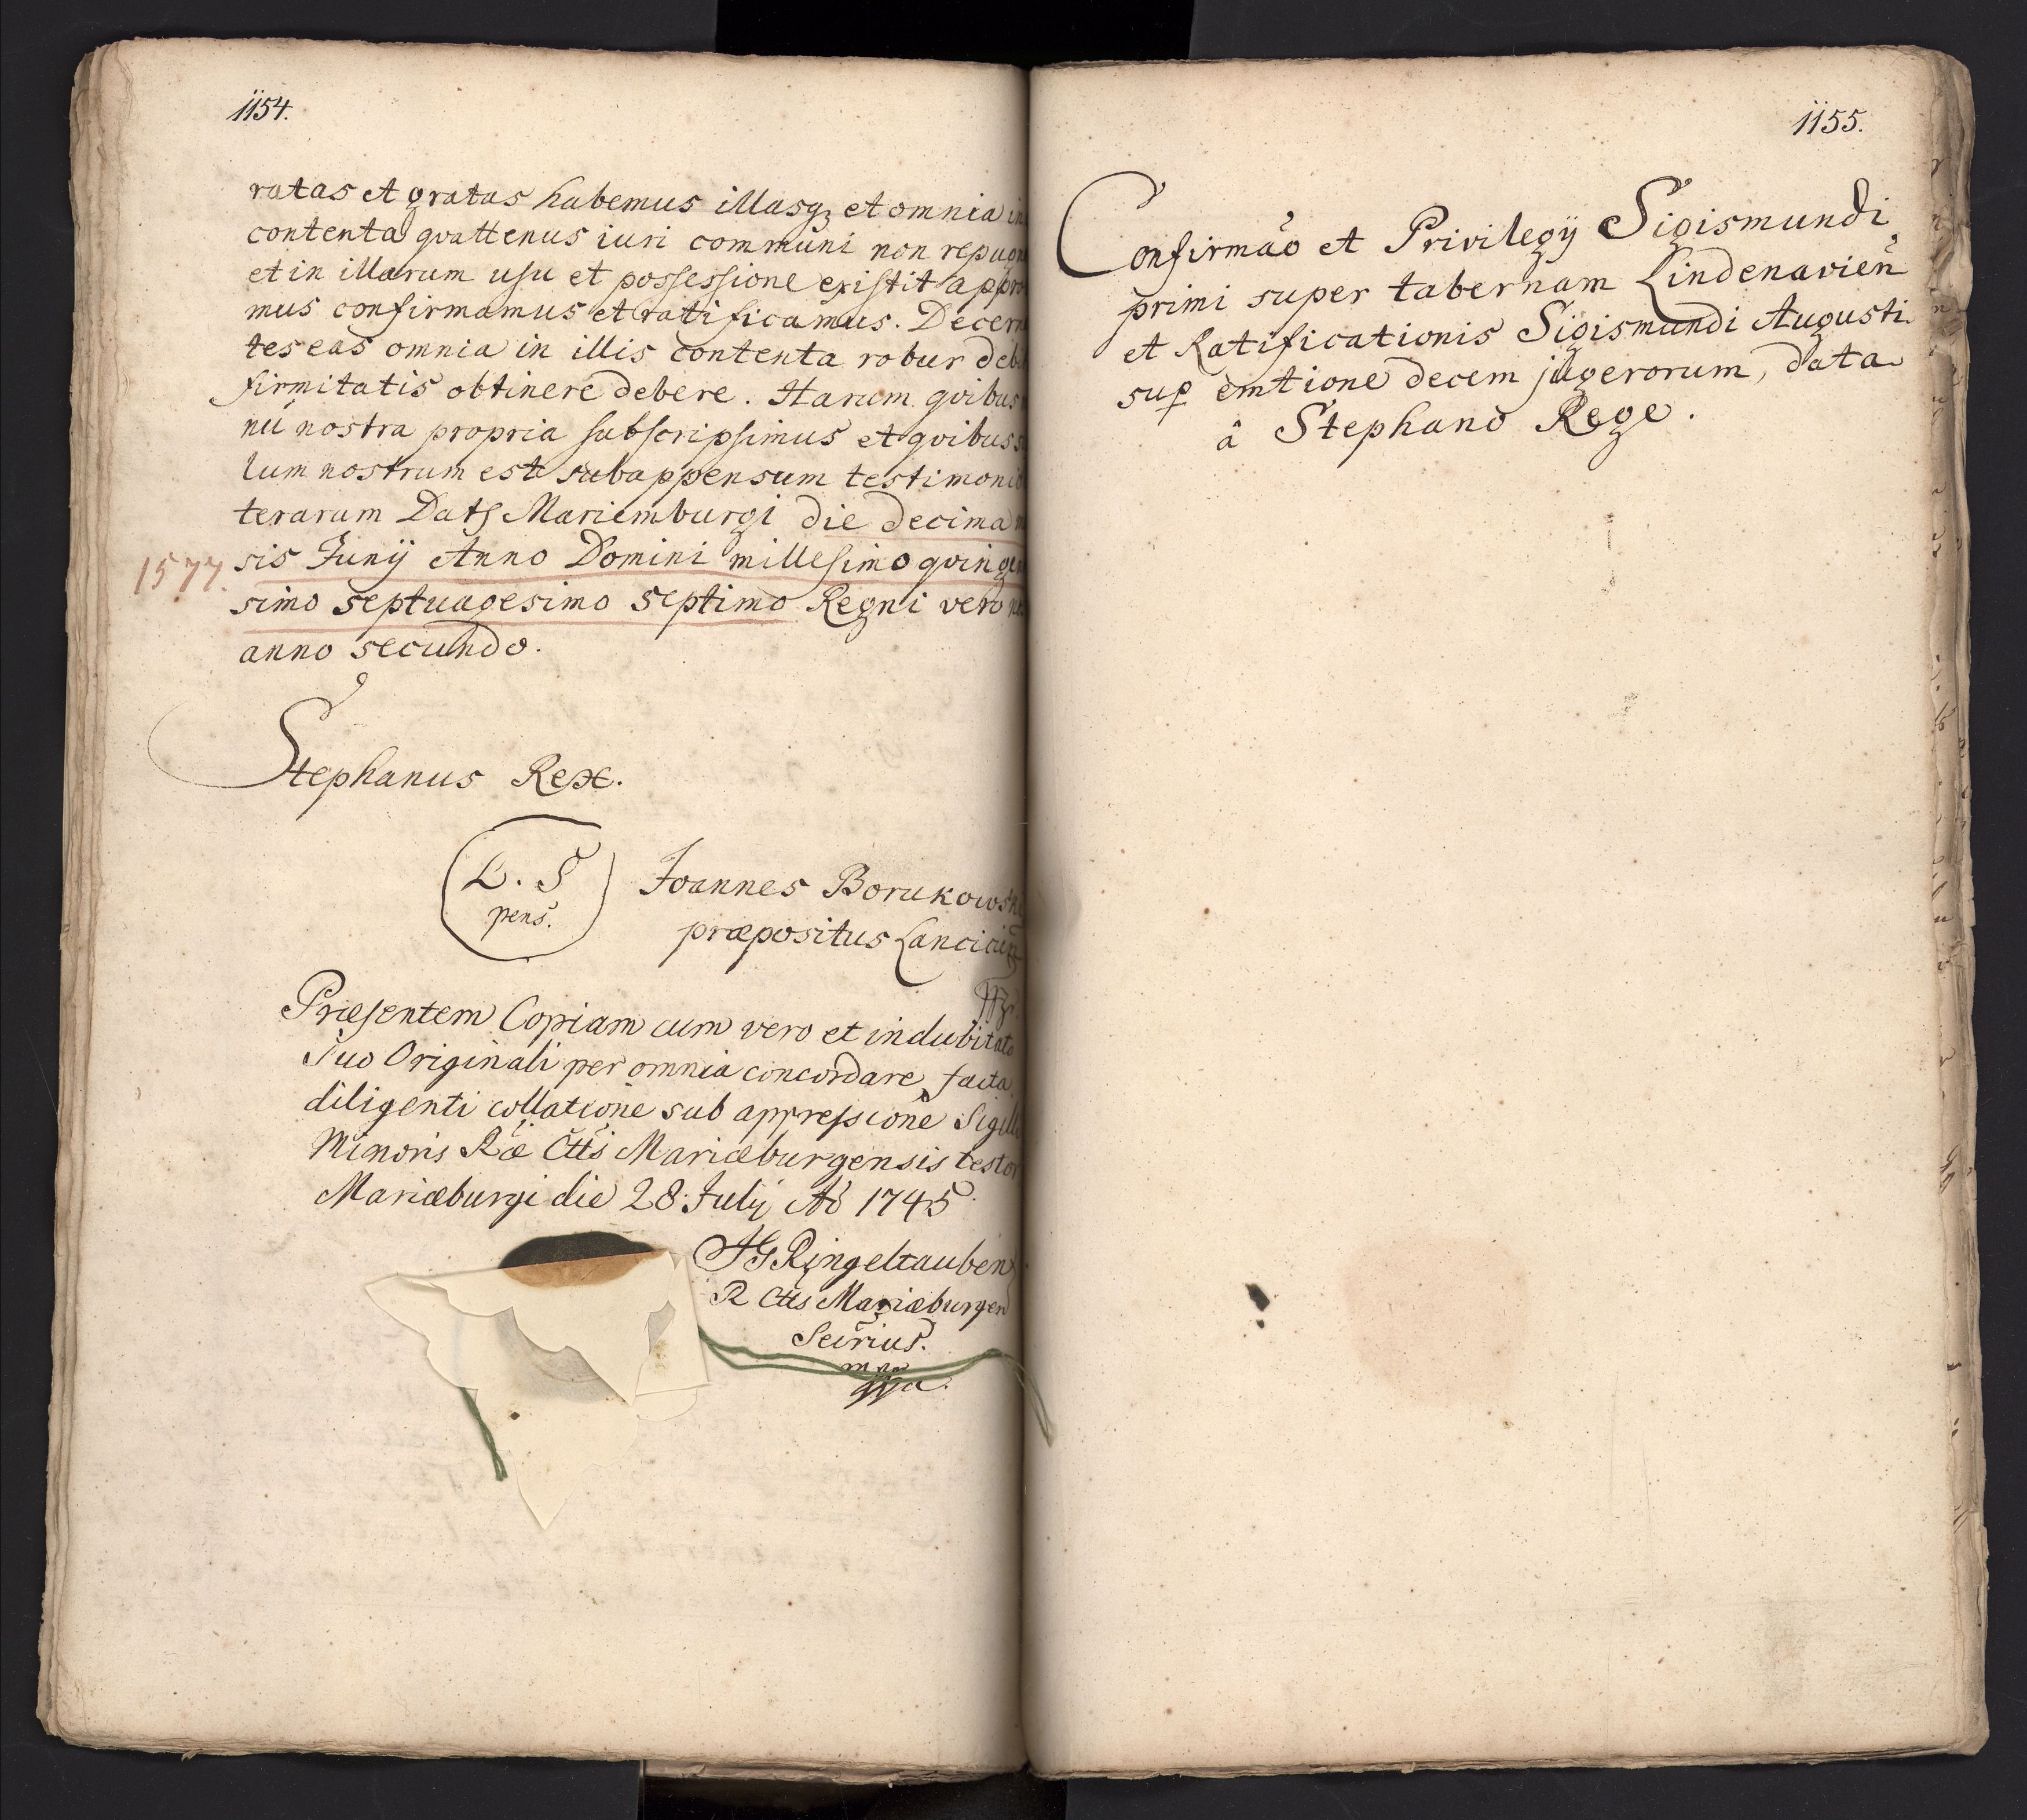 1154.
ratas et gratas habemus illasqz et omnia in
contenta qvattenus iuri communi non repugn
et in illarum usu et possessione existit appro
mus confirmamus et ratificamus. Decern
tes eas omnia in illis contenta robur deb
firmitatis obtinere debere. Harum qvibus
nu nostra propria subscripsimus et qvibus
lum nostrum est subappensum testimonio
terarum Dats Mariemburgi die decima
1577. sis Junÿ Anno Domini millesimo qvinge
simo septuagesimo septimo Regni vero
anno secundo.
Stephanus Rex.
L. S
pens.
Joannes Borukowski
præpositus Lancicien
Præsentem Copiam cum vero et indubitato
Suo Originali per omnia concordare, facta
diligenti collatione sub appressione Sigilli
Minoris Ræ Cttis Mariæburgensis testor
Mariæburgi die 28. Julÿ Aō 1745.
HGRingeltauben
R Cttis Mariæburgen
Secrius.
mppa.
1155.
Confirmāo et Privilegÿ Sigismundi
primi super tabernam Lindenavien̄
et Ratificationis Sigismundi Augusti
sup emtione decem jugerorum, data
â Stephano Rege.